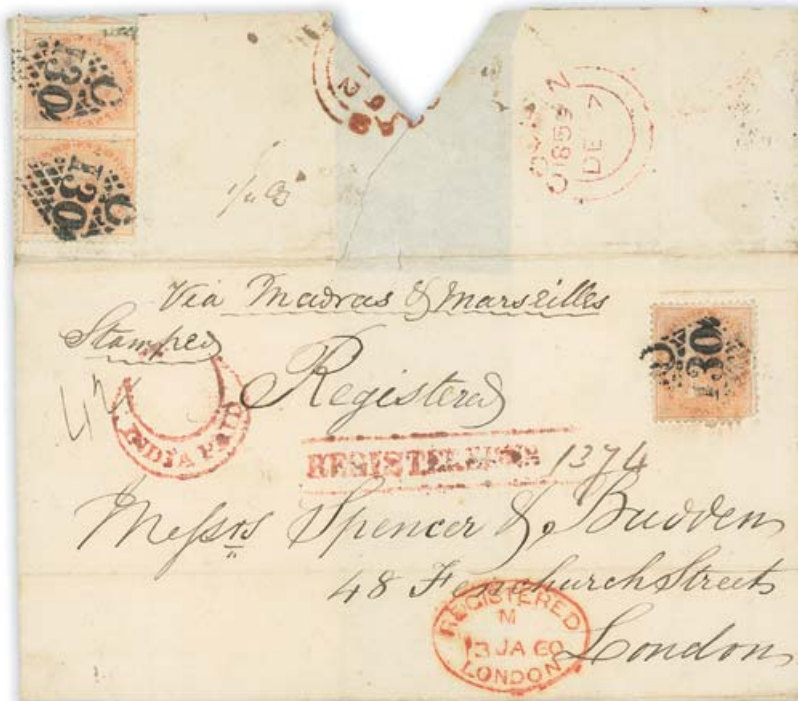 C
130
C
130
1859
DE 7
Via Madras & Marseilles
Stamped
Registered
C
130
INDIA PAID
REGISTERED 1374
Messrs Spencer & Budden
48 Fenchurch Street
REGISTERED
M
13 JA 60
LONDON
London